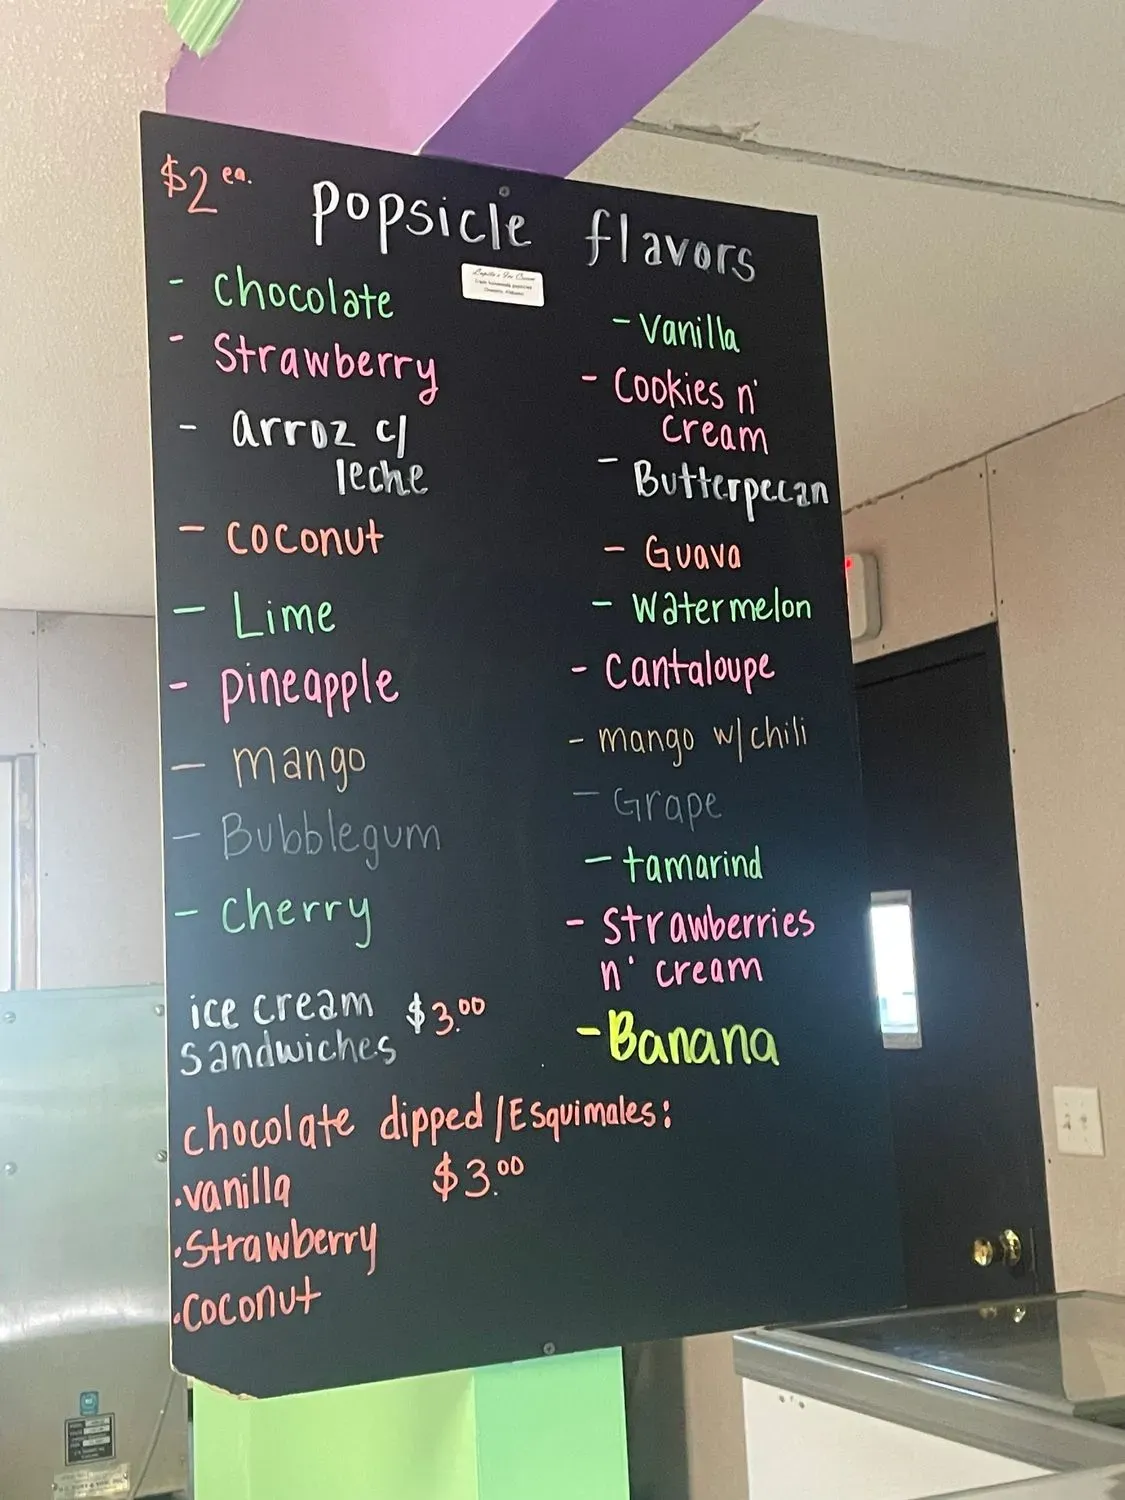 $2 ea.
popsicle flavors
- chocolate
- Strawberry
- arroz c/
leche
- coconut
- Lime
- pineapple
- mango
- Bubblegum
- cherry
- Vanilla
- Cookies n'
cream
- Butterpecan
- Guava
- Watermelon
- Cantaloupe
- mango w/chili
- Grape
- tamarind
- Strawberries
n' cream
- Banana
ice cream $3.00
sandwiches
chocolate dipped/Esquimales:
.vanilla $3.00
.Strawberry
.coconut